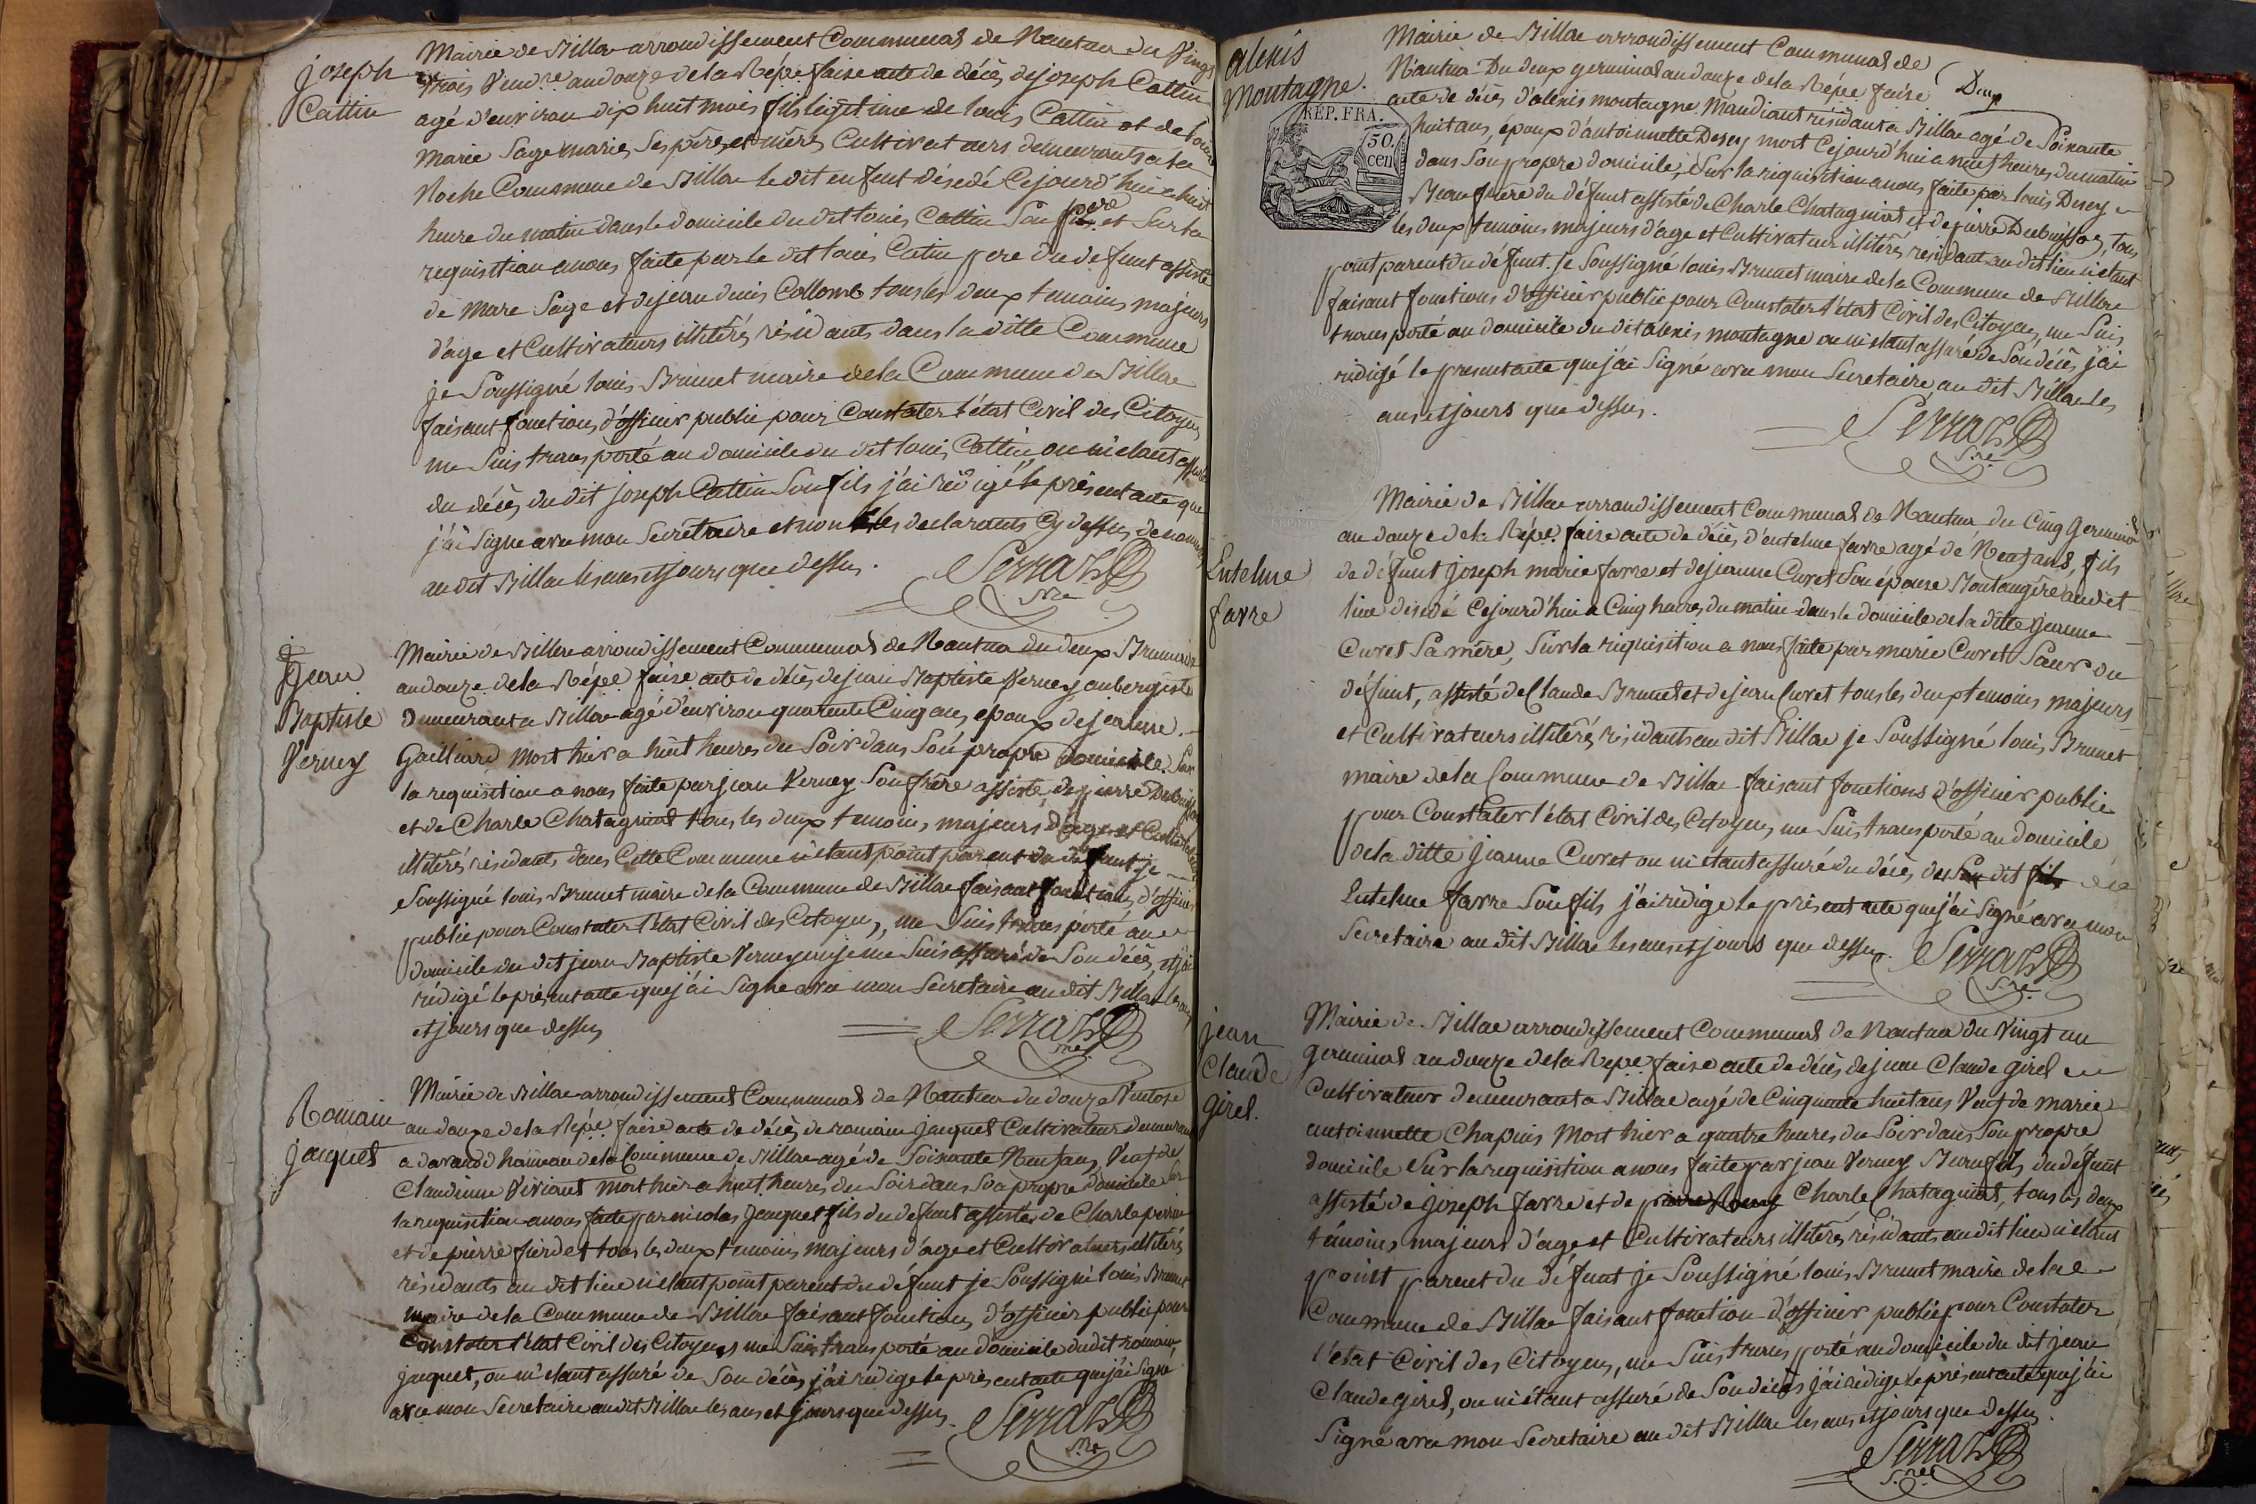 Joseph
Cattin
Mairie de Billac arrondissement Communal de Nantua du Vingt
trois Vend.re an douze de la Rép.e faire acte de décès de joseph Cattin
agé d'environ dix huit mois fils légitime de louis Cattin et de
marie Sage mariés, ses père et mère, Cultivateurs demeurants a la
Roche Commune de Billac le dit enfant décedé Cejourd'hui a huit
heure du matin dans le domicile du dit louis Cattin Son père et Sur la
requisition a nous faite par le dit louis Catin pere du defunt assisté
de Mare Sage et de jean denis Collomb tous les deux temoins majeurs
d'age et Cultivateurs illiterés résidants dans la ditte Commune
je Soussigné louis Brunet maire de la Commune de Billac
faisant fonctions d'officier public pour Constater l'état Civil des Citoyens
me suis transporté au domicile du dit louis Cattin, ou m'étant assuré
du décès du dit joseph Cattin Son fils j'ai rédigé le présent acte que
j'ai Signé avec mon Secretaire et non les declarants Cy dessus denommés
au dit Billac les ans et jours que dessus.
Serraz
S.re
Jean
Baptiste
Verney
Mairie de Billac arrondissement Communal de Nantua du deux Brumaire
an douze de la Rép.e faire acte de décès de jean Baptiste Verney aubergiste
demeurant a Billac agé d'environ quarente Cinq ans, epoux de jeanne
Gaillard mort hier a huit heures du Soir dans Son propre domicile. Sur
la requisition a nous faite par jean Verney Son frère assisté de pierre Dubuisson
et de Charle Chatagniat tous les deux temoins majeurs d'age et Cultivateurs
illiterés residants dans Cette Commune n'etant point parent du defunt je
Soussigné louis Brunet maire de la Commune de Billac faisant fonctions d'officier
public pour Constater l'état Civil des Citoyens, me Suis transporté au
domicile du dit jean Baptiste Verney ou je me Suis assuré de Son décès, et j'ai
rédigé le présent acte que j'ai Signé avec mon Secretaire au dit Billac les ans
et jours que dessus
Serraz
S.re
Romain
jacquet
Mairie de Billac arrondissement Communal de Nantua du douze Ventose
an douze de la Rép.e faire acte de décès de romain jacquet Cultivateur demeurant
a davanod hameau de la Commune de Billac agé de Soixante Neuf ans, Veuf de
Claudinne Viviant mort hier a huit heures du Soir dans Son propre domicile Sur
la requisition a nous faite par nicolas jacquet fils du defunt assisté de Charle perrin
et de pierre fierdet tous les deux temoins majeurs d'age et Cultivateurs illiterés
résidants au dit lieu n'etant point parent du défunt je Soussigné louis Brunet
maire de la Commune de Billac faisant fonctions d'officier public pour
Constater l'état Civil des Citoyens me Suis transporté au domicile du dit romain
jacquet, ou m'étant assuré de Son décès j'ai rédigé le présent acte que j'ai Signé
avec mon Secretaire au dit Billac les ans et jours que dessus.
Serraz
S.re
alexis
Montagne.
REP. FRA.
50.
cen
Mairie de Billac arrondissement Communal de
Nantua Du deux germinal an douze de la Répu.e faire
acte de décès d'alexis montagne Mandiant résidant a Billac agé de Soixante
Deux
huit ans, époux d'antoinnette Desey mort Cejourd'hui a neuf heures du matin
dans Son propre domicile, Sur la requisition a nous faite par louis Desey
Beau frère du défunt assisté de Charle Chatagniat et de pierre Dubuisson, tous
les deux temoins majeurs d'age et Cultivateurs illiterés résidant au dit lieu n'étant
point parent du défunt. je Soussigné louis Brunet maire de la Commune de Billac
faisant fonctions d'officier public pour Constater l'état Civil des Citoyens, me Suis
transporté au domicile du dit alexis montagne ou m'étant assuré de Son décès j'ai
rédigé le present acte que j'ai Signé avec mon Secretaire au dit Billac les
ans et jours que dessus.
Serraz
S.re
Entelme
favre
Mairie de Billac arrondissement Communal de Nantua du Cinq Germinal
an douze de la Rép.e faire acte de décès d'entelme favre agé de Neuf ans, fils
de défunt joseph marie favre et de jeanne Curet Son épouse Boulangère au dit
lieu décedé Cejourd'hui a Cinq heures du matin dans le domicile de la ditte jeanne
Curet Sa mère, Sur la requisition a nous faite par marie Curet Sœur du
défunt, assisté de Claude Brunet et de jean Curet tous les deux temoins majeurs
et Cultivateurs illiterés residants au dit Billac je Soussigné louis Brunet
maire de la Commune de Billac faisant fonctions d'officier public
pour Constater l'état Civil des Citoyens, me Suis transporté au domicile
de la ditte jeanne Curet ou m'etant assuré du décès du dit
Entelme favre Son fils j'ai rédigé le présent acte que j'ai Signé avec mon
Secretaire au dit Billac les ans et jours que dessus.
Serraz
S.re
jean
Claude
Girel.
Mairie de Billac arrondissement Communal de Nantua du Vingt un
germinal an douze de la Rép.e faire acte de décès de jean Claude girel
Cultivateur demeurant a Billac agé de Cinquante huit ans Veuf de marie
antoinnette Chapuis Mort hier a quatre heures du Soir dans Son propre
domicile Sur la requisition a nous faite par jean Verney Beau fils du défunt
assisté de joseph favre et de Charle Chatagniat, tous les deux
témoins majeurs d'age et Cultivateurs illiterés résidants au dit lieu n'étant
point parent du défunt je Soussigné louis Brunet maire de la
Commune de Billac faisant fonction d'officier public pour Constater
l'état Civil des Citoyens, me Suis transporté au domicile du dit jean
Claude girel, ou m'étant assuré de Son décès j'ai rédigé le présent acte que j'ai
Signé avec mon Secretaire au dit Billac les ans et jours que dessus.
Serraz
S.re